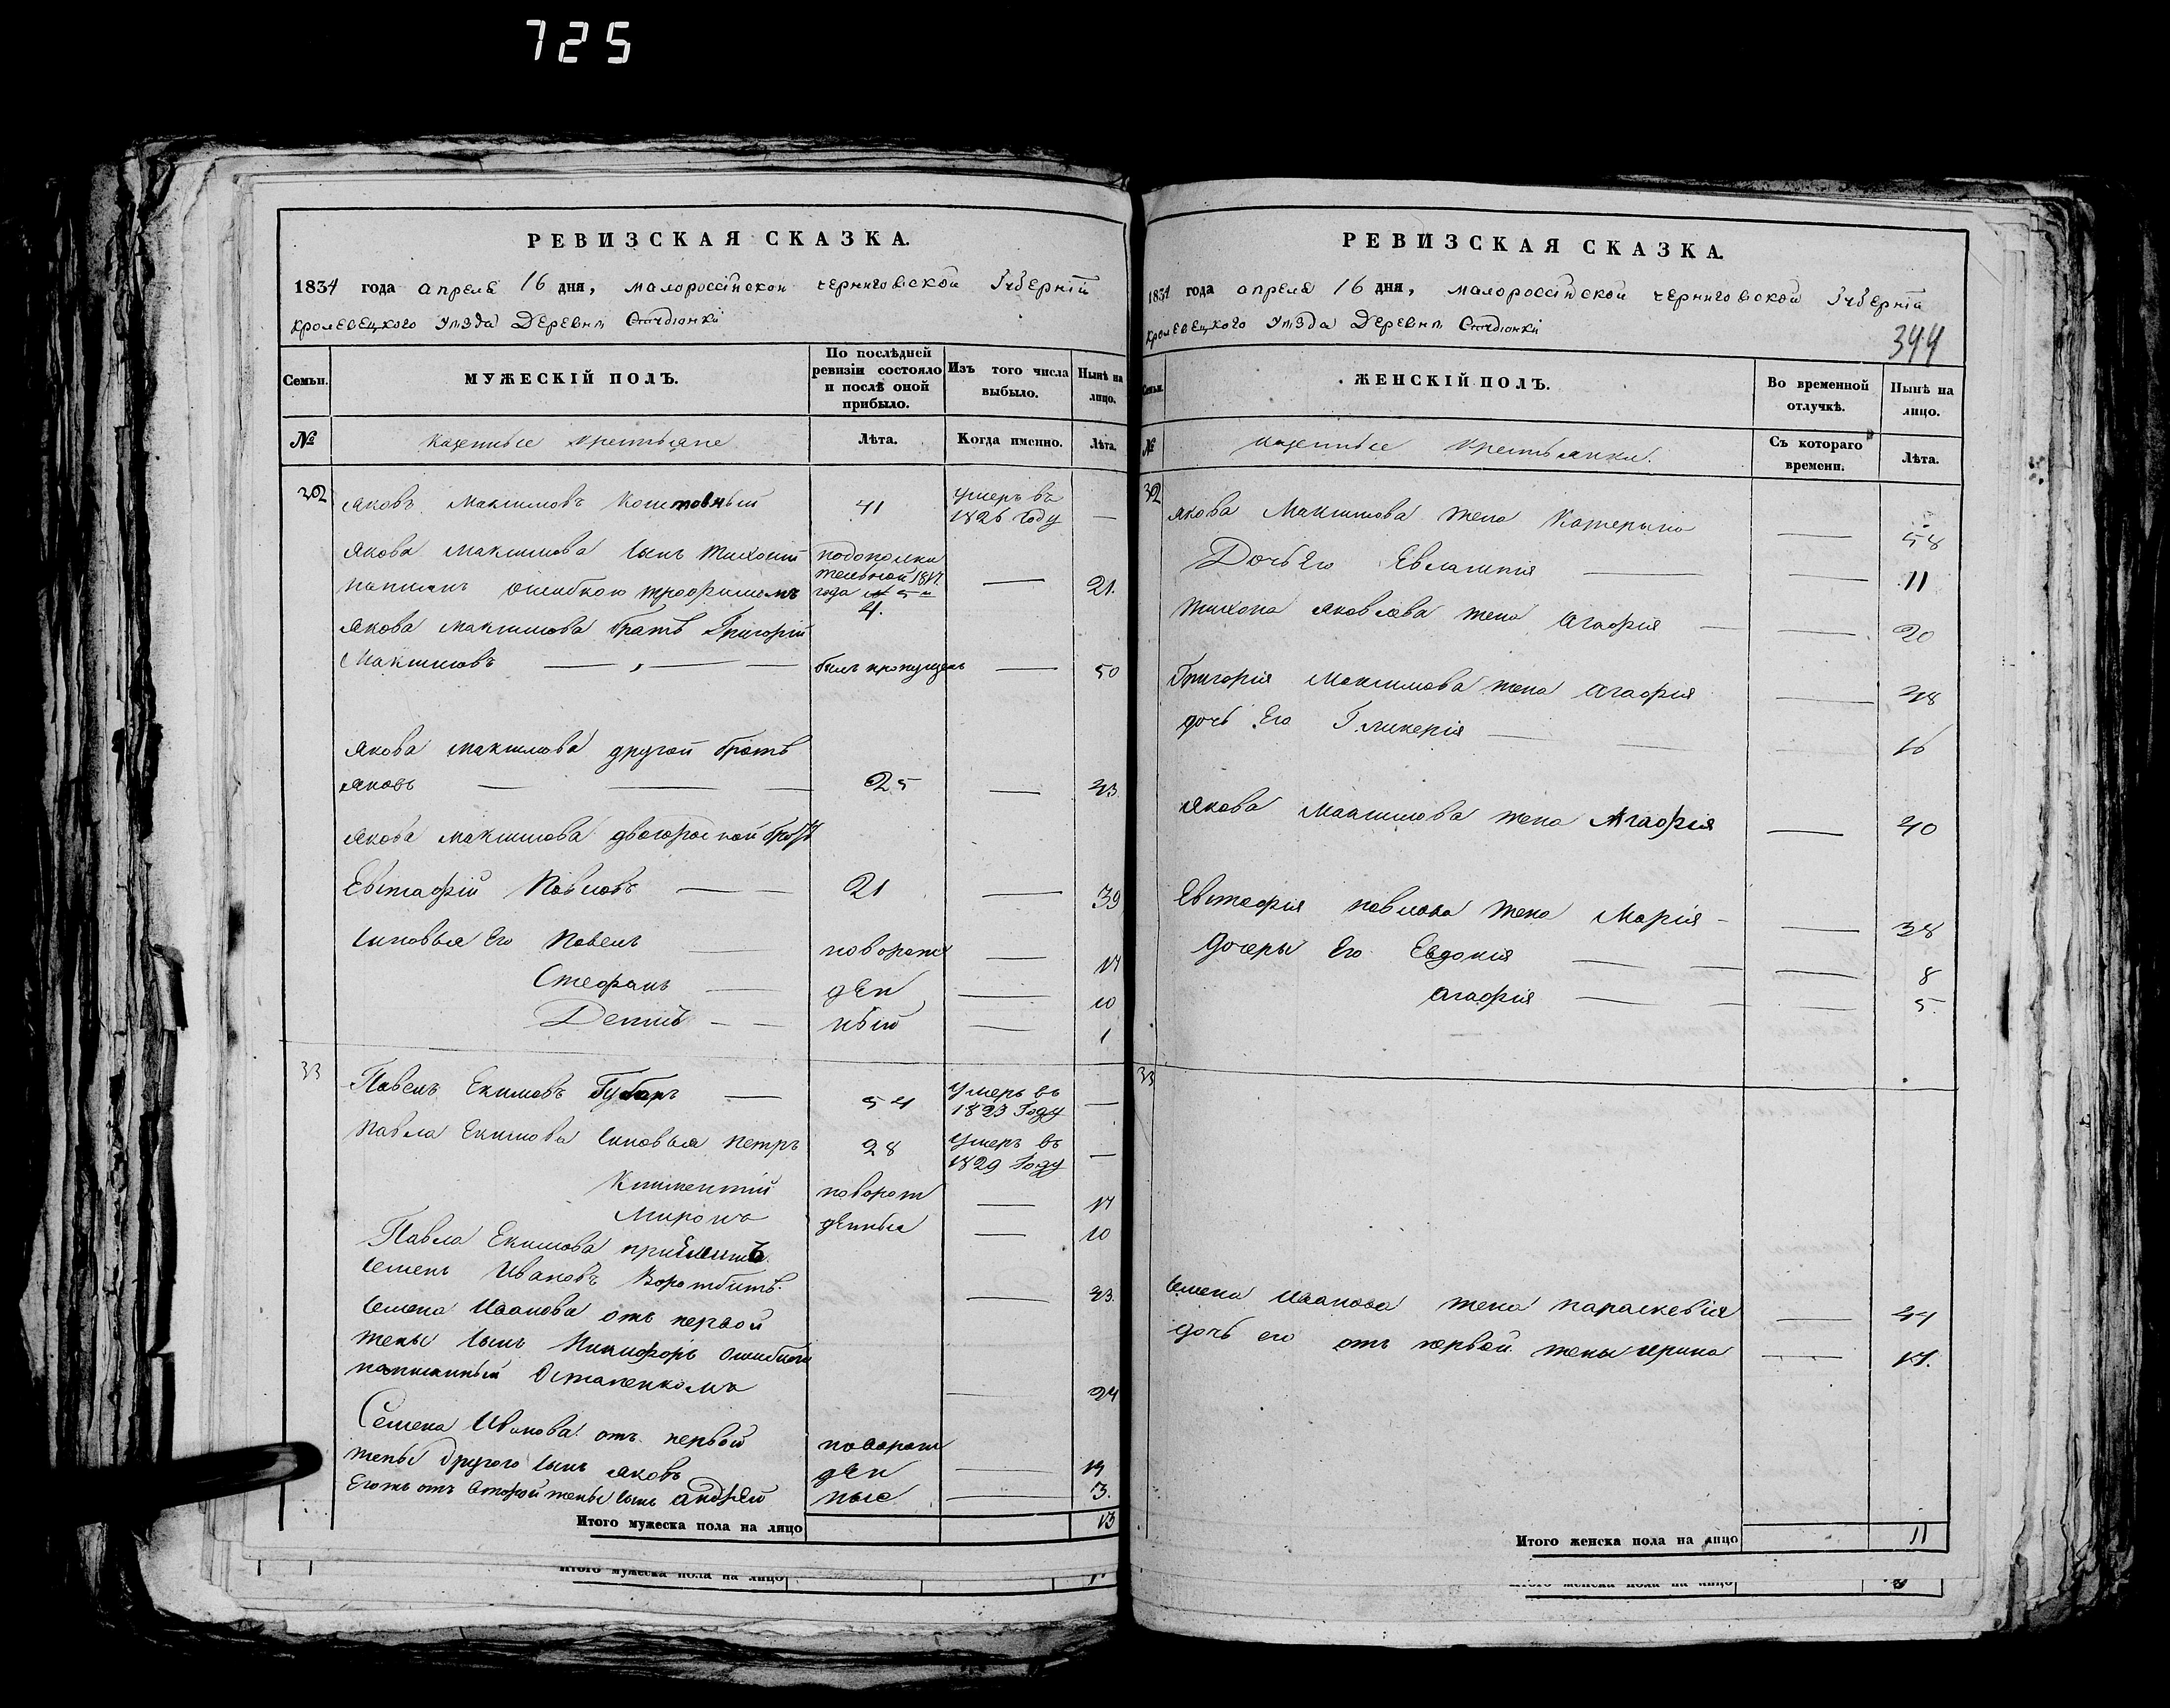 725
РЕВИЗСКАЯ СКАЗКА.
1834 года апреля 16 дня, малороссійской черниговской Губерніи
кролевецкого Уѣзда Деревни
Семьи.
МУЖЕСКІЙ ПОЛЪ.
По послѣдней ревизіи состояло и послѣ оной прибыло.
Изъ того числа выбыло.
Нынѣ на лицо.
№
казенные крестьяне
Лѣта.
Когда именно.
Лѣта.
32 Яковъ Максимовъ 41 умеръ въ 1826 Году —
Якова Максимова сынъ Тихонъ
написанъ ошибкою трофимомъ
подополни
тельной 1817.
года
4. — 21.
Якова Максимова братъ Григорій
Максимовъ — былъ пропущенъ — 50
Якова Максимова другой братъ
Яковъ — 25 — 43
Якова Максимова двоюродной братъ
Евстафій Павловъ — 21 — 39
сыновья Его Павелъ — новорож — 17
Стефанъ — ден — 10
Денисъ — ный — 1
33 Павелъ Екимовъ Губарь — 54 умеръ въ 1823 Году —
Павла Екимова сыновья Петръ 28 умеръ въ 1829 Году —
новорож — 17
Миронъ денные — 10
Павла Екимова
Семенъ Ивановъ Коротбитъ. — 43.
Семена Иванова отъ первой
жены сынъ Никифоръ ошибкою
написанный Остапенкомъ — 24
Семена Иванова отъ первой новорож
жены другого сынъ Яковъ ден — 14
Егожъ отъ второй жены сынъ андрей ные — 3.
Итого мужеска пола на лицо 13
РЕВИЗСКАЯ СКАЗКА.
1834 года апреля 16 дня, малороссійской черниговской Губерніи
кролевецкого Уѣзда Деревни
344
Семьи.
ЖЕНСКІЙ ПОЛЪ.
Во временной отлучкѣ.
Нынѣ на лицо.
№
казенные крестьянки.
Съ котораго времени.
Лѣта.
32 Якова Максимова жена Катерина — 58
Дочь Его Евлампія — 11
Тихона Яковлева жена Агафія — 20
Григорія Максимова жена Агафія — 48
дочь Его Гликерія — 16
Якова Максимова жена Агафія — 40
Евстафія Павлова жена Марія — 38
Дочеры Его Евдокія — 8
Агафія — 5.
33
Семена Иванова жена Параскевія — 44
дочь его отъ первой жены Ирина — 17.
Итого женска пола на лицо 11
Итого мужеска пола на лицо
Итого женска пола на лицо